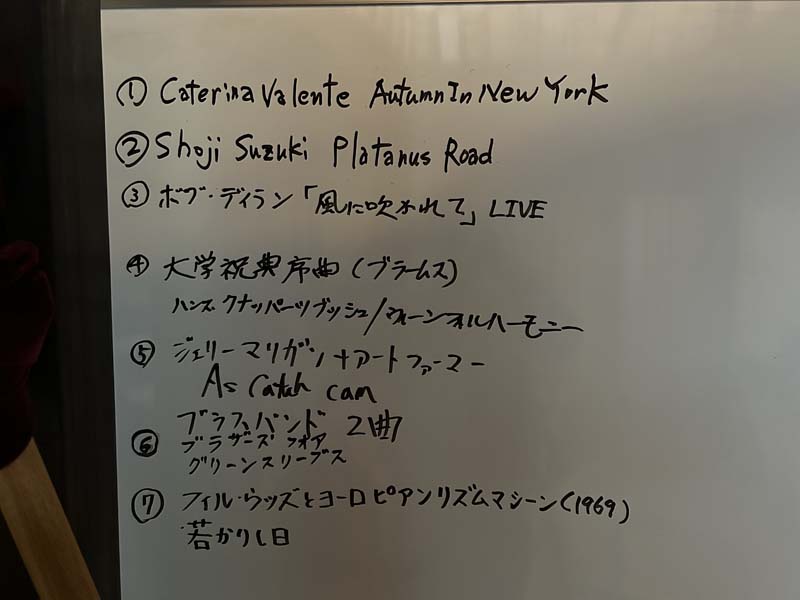 ① Caterina Valente Autumn In New York
② Shoji Suzuki Platanus Road
③ ボブ・ディラン「風に吹かれて」LIVE
④ 大学祝典序曲(ブラームス)
ハンス クナッパーツブッシュ/ウィーンフィルハーモニー
⑤ ジェリーマリガン+アートファーマー
As Catch can
ブラスバンド 2曲
⑥ ブラザーズフォア
グリーンスリーブス
⑦ フィル・ウッズとヨーロピアンリズムマシーン(1969)
若かりし日